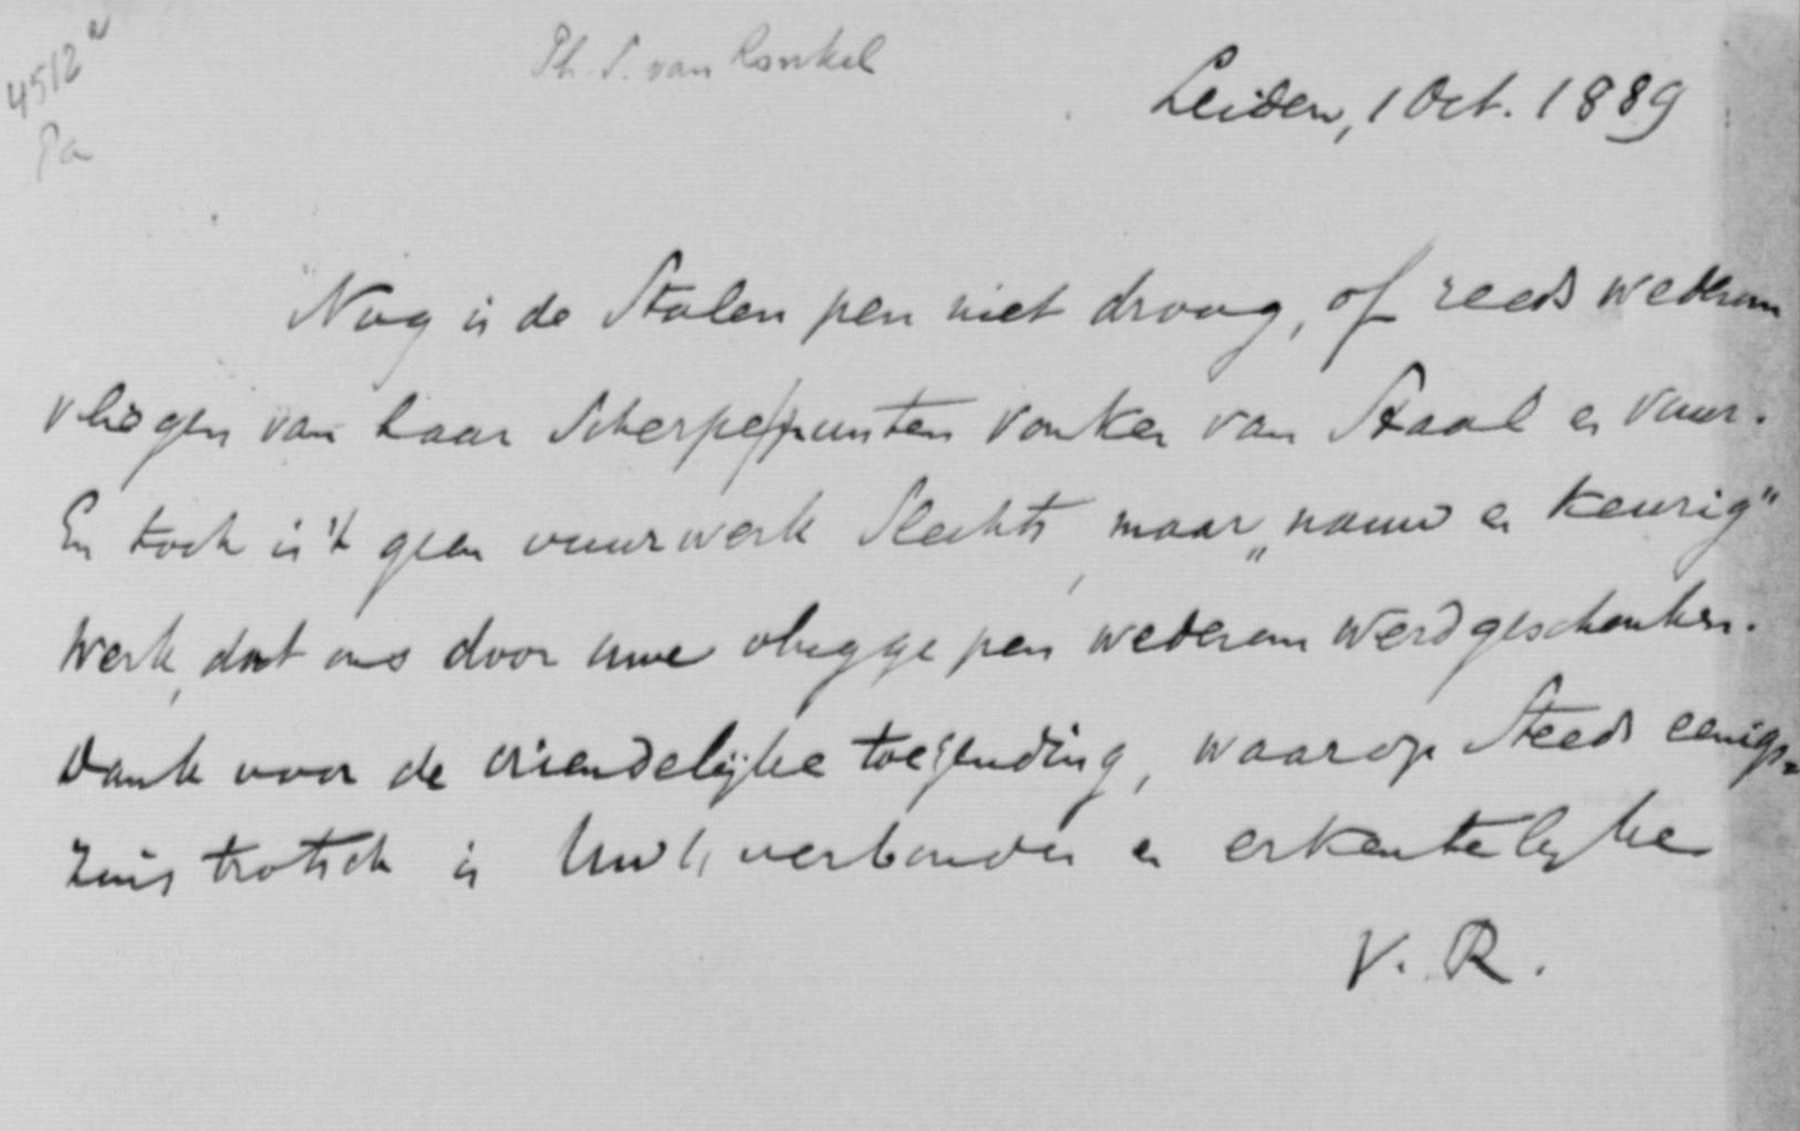 4512 a
Pa
Ph. S. van Ronkel
Leiden, 1 Oct. 1889
Nog is de stalen pen niet droog, of reeds wederom
vliegen van haar scherpe punten vonken van staal en vuur.
En toch is 't geen vuurwerk slechts, maar „nauw en keurig"
werk, dat ons door uwe vlugge pen wederom werd geschonken.
Dank voor de vriendelijke toezending, waarop steeds eenigs=
zins trotsch is Uw verbonden en erkentelijke
V. R.